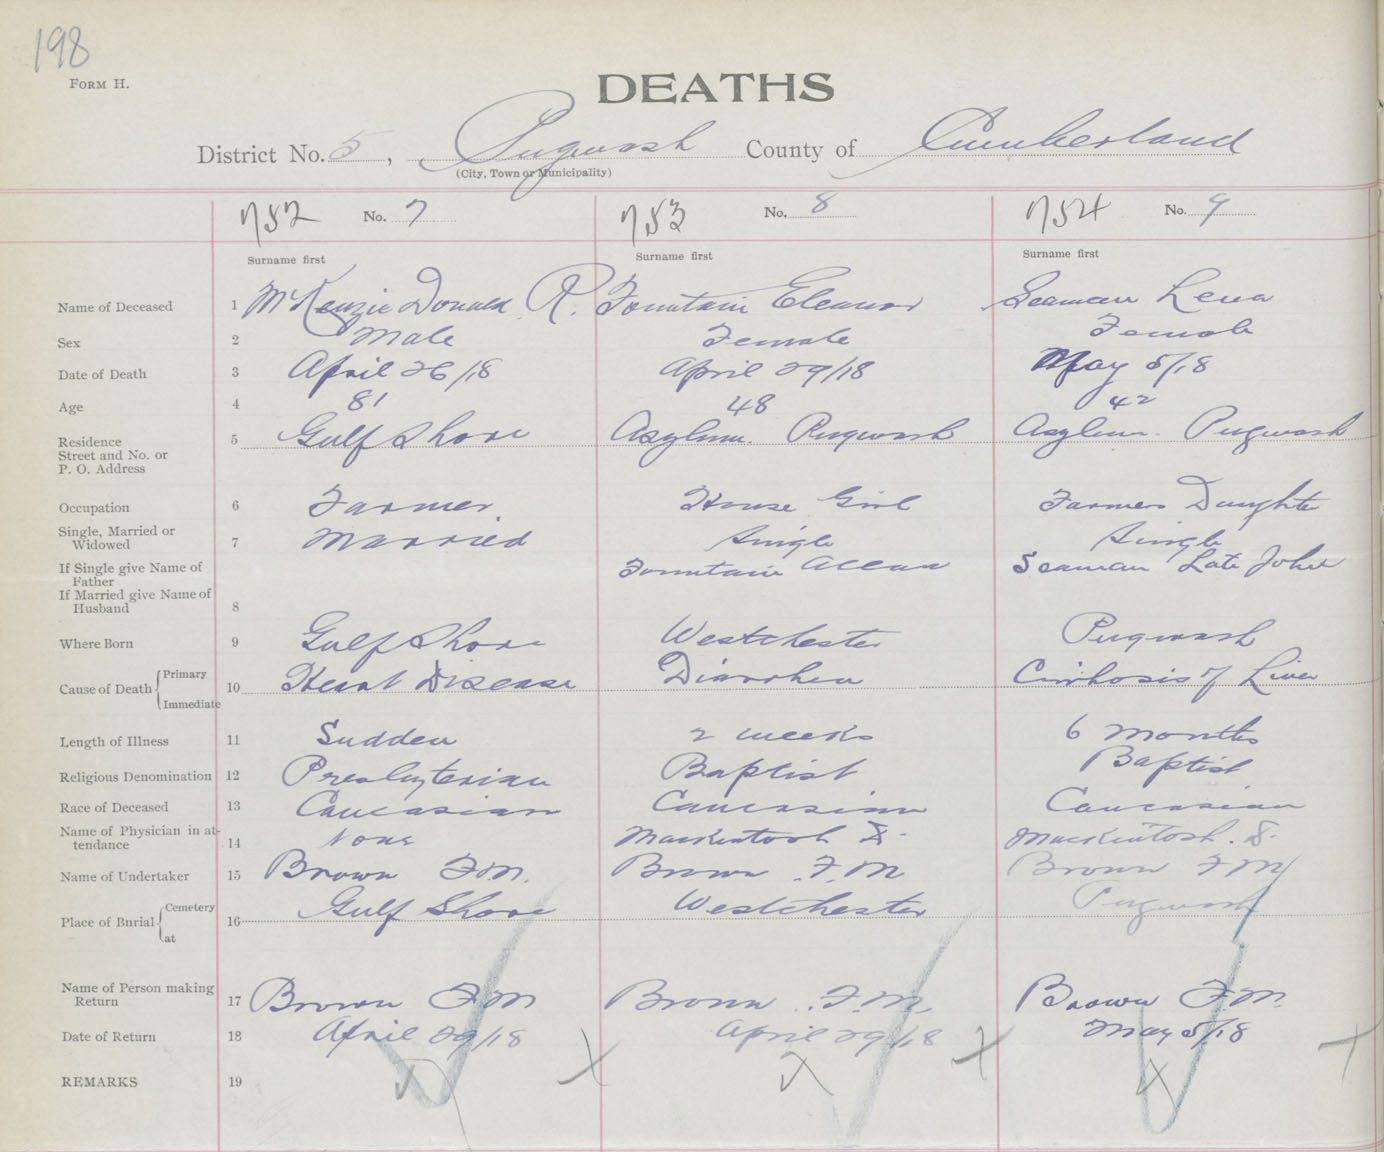 198
FORM H.
DEATHS
District No. 5, Pugwash County of Cumberland
(City, Town or Municipality)
752 No. 7 753 No. 8 754 No. 9
Surname first Surname first Surname first
Name of Deceased 1 McKenzie Donald R. Fountain Eleanor Seaman Lena
Sex 2 Male Female Female
Date of Death 3 April 26/18 April 29/18 May 5/18
Age 4 81 48 42
Residence Street and No. or P. O. Address 5 Gulf Shore Asylum. Pugwash Asylum. Pugwash
Occupation 6 Farmer House Girl Farmers Daughter
Single, Married or Widowed 7 Married Single Single
If Single give Name of Father Fountain Allan Seaman Late John
If Married give Name of Husband 8
Where Born 9 Gulf Shore Westchester Pugwash
Cause of Death { Primary Immediate 10 Heart Disease Diarrhea Cirrhosis of Liver
Length of Illness 11 Sudden 2 weeks 6 months
Religious Denomination 12 Presbyterian Baptist Baptist
Race of Deceased 13 Caucasian Caucasian Caucasian
Name of Physician in attendance 14 None MacKintosh MacKintosh.
Name of Undertaker 15 Brown F.M. Brown F.M Brown F M
Place of Burial { Cemetery at 16 Gulf Shore Westchester Pugwash
Name of Person making Return 17 Brown F.M Brown F.M. Brown F.M.
Date of Return 18 April 29/18 April 29/18 May 5/18
REMARKS 19